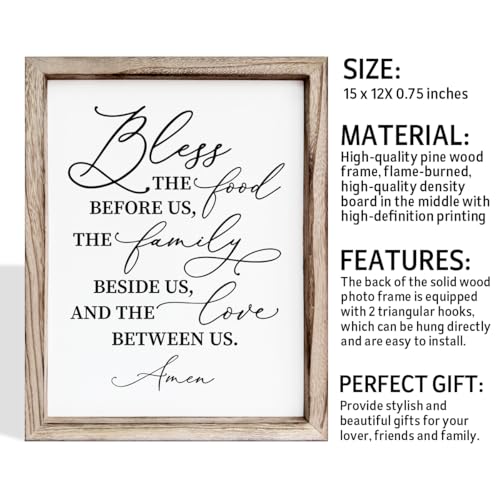 Bless
THE food
BEFORE US,
THE family
BESIDE US,
AND THE love
BETWEEN US.
Amen
SIZE:
15 x 12X 0.75 inches
MATERIAL:
High-quality pine wood
frame, flame-burned,
high-quality density
board in the middle with
high-definition printing
FEATURES:
The back of the solid wood
photo frame is equipped
with 2 triangular hooks,
which can be hung directly
and are easy to install.
PERFECT GIFT:
Provide stylish and
beautiful gifts for your
lover, friends and family.